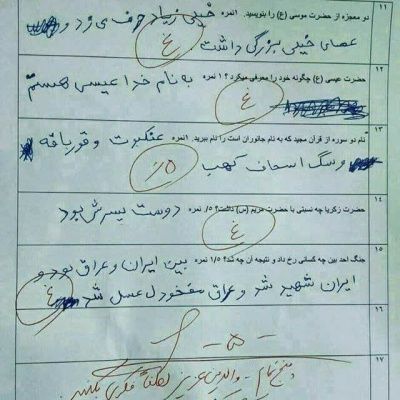 ۱۱
دو معجزه از حضرت موسی (ع) را بنویسید. ۱نمره خیلی زیاد حرف می زد و
عصای خیلی بزرگی داشت
غ
۱۲
حضرت عیسی (ع) چگونه خود را معرفی میکرد؟ ۱ نمره به نام خدا عیسی هستم
غ
۱۳
نام دو سوره از قرآن مجید که به نام جانوران است را نام ببرید. ۱نمره عنکبوت و قورباقه
و سگ اسحاف کهب
۰/۵
۱۴
حضرت زکریا چه نسبتی با حضرت مریم (س) داشت؟ ۰/۵ نمره دوست پسرش بود
غ
۱۵
جنگ احد بین چه کسانی رخ داد و نتیجه آن چه شد؟ ۱/۵ نمره بین ایران و عراق بود و
ایران شهید شد و عراق مفخودل عسل شد
غ
۱۶
-۵-
۱۷
پنج تمام - والدین عزیز لطفاً فکری بکنید